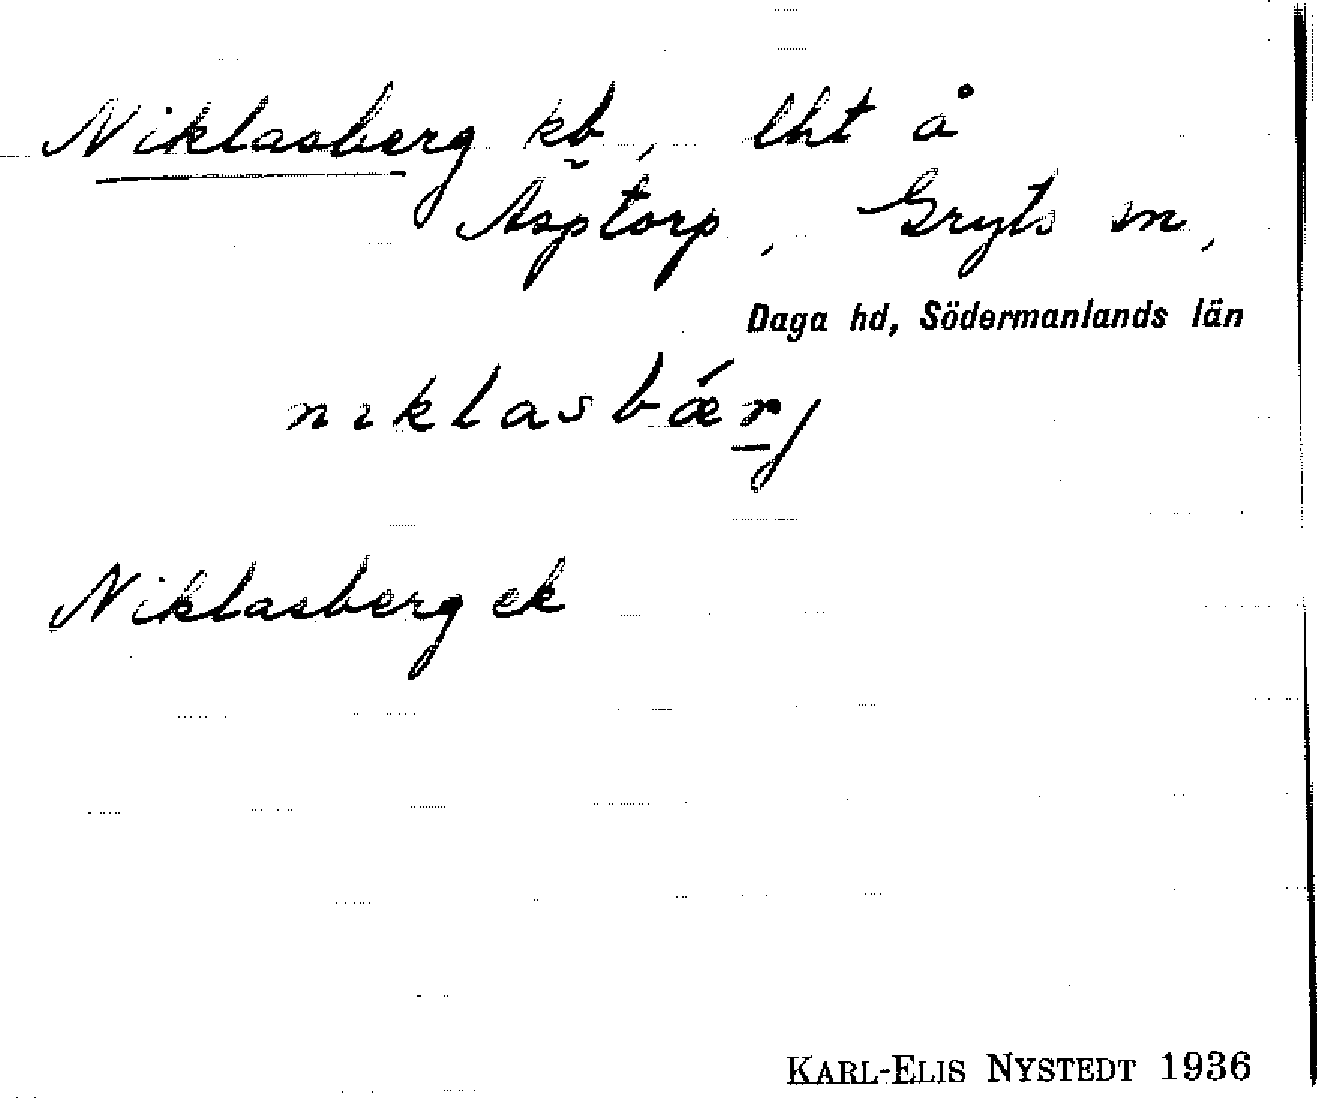 Niklasberg kb, lht å
Asptorp, Gryts sn,
Daga hd, Södermanlands län
nıklasbǽrj
Niklasberg ek
KARL-ELIS NYSTEDT 1936